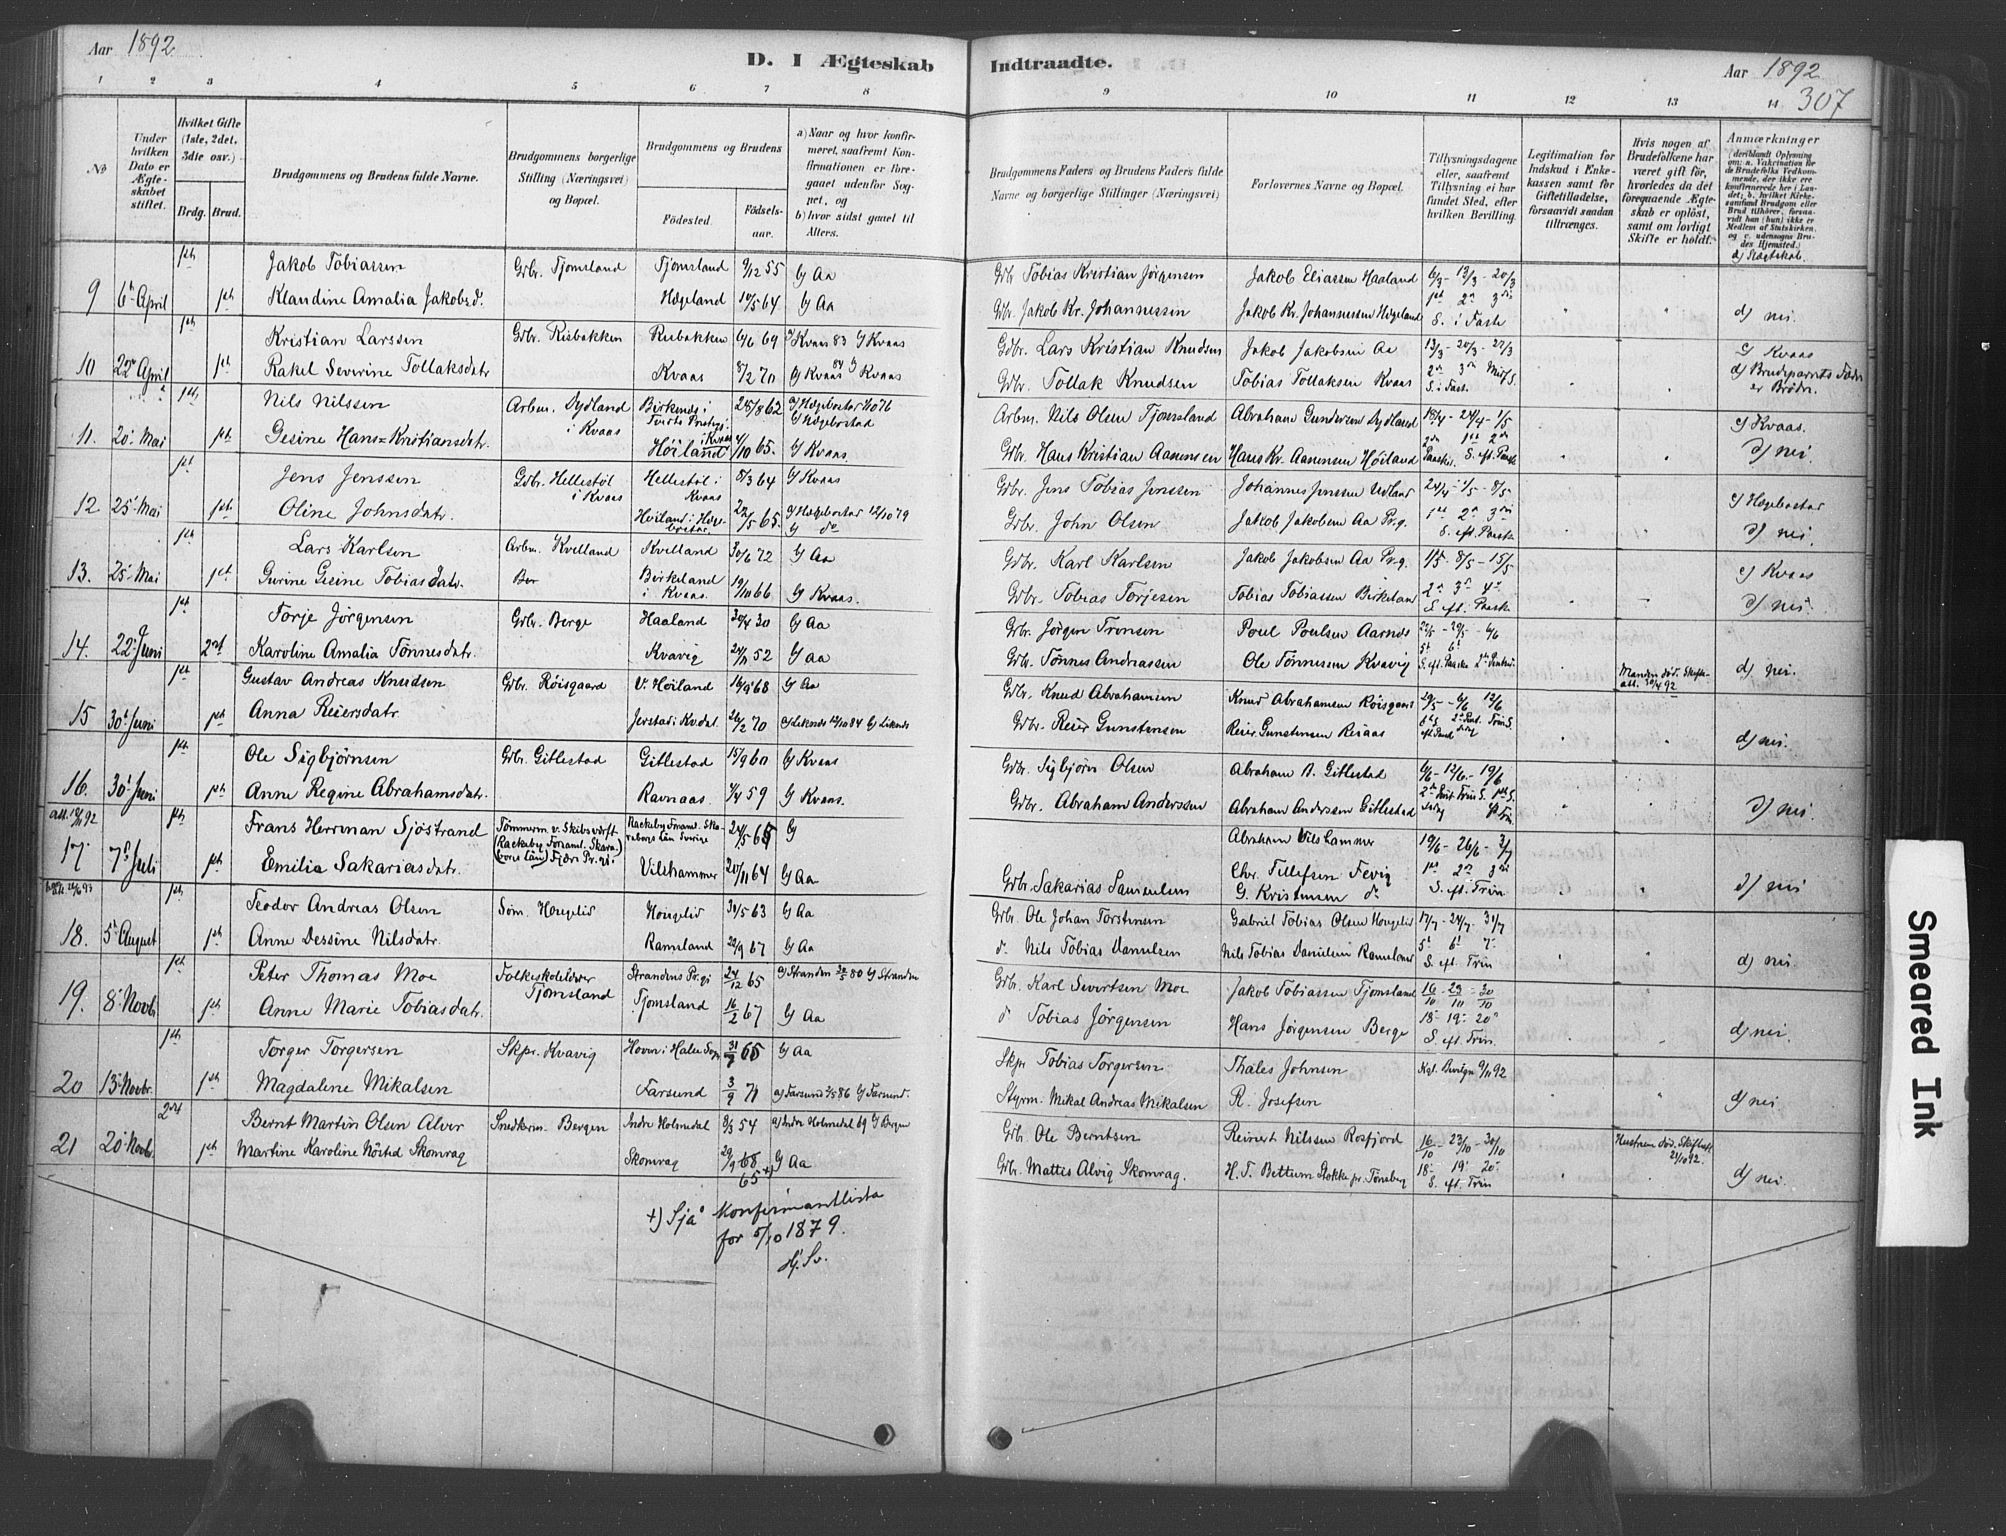 Aar 1892
D. I Ægteskab Indtraadte.
Aar 1892
307
1 2 3 4 5 6 7 8 9 10 11 12 13 14
No
Under hvilken Dato er Ægteskabet stiftet.
Hvilket Gifte (1ste, 2det, 3die osv.)
Brdg. Brud.
Brudgommens og Brudens fulde Navne.
Brudgommens borgerlige Stilling (Næringsvei) og Bopæl.
Brudgommens og Brudens
Födested. Födselsaar.
a) Naar og hvor konfirmeret, saafremt Konfirmationen er foregaaet udenfor Sognet, og
b) hvor sidst gaaet til Alters.
Brudgommens Faders og Brudens Faders fulde Navne og borgerlige Stillinger (Næringsvei)
Forlovernes Navne og Bopæl.
Tillysningsdagene eller, saafremt Tillysning ei har fundet Sted, efter hvilken Bevilling.
Legitimation for Indskud i Enkekassen samt for Giftetilladelse, forsaavidt saadan tiltrænges.
Hvis nogen af Brudefolkene har været gift för, hvorledes da det foregaaende Ægteskab er oplöst, samt om lovligt Skifte er holdt.
Anmærkninger
(deriblandt Oplysning om: a. Vakcination for de Brudefolks Vedkommende, der ikke ere konfirmerede her i Landet; b. hvilket Kirkesamfund Brudgom eller Brud tilhörer, forsaavidt han (hun) ikke er Medlem af Statskirken, og c. udensogns Brudes Hjemsted.)
d) Slægtskab.
1ste Jakob Tobiassen Gdbr. Tjomsland Tjomsland 9/12 55 b) Aa Gdbr Tobias Kristian Jörgensen Jakob Eliassen Haaland 6/3 - 13/3 - 20/3
9 6te April 1ste Klaudine Amalia Jakobsd. Hægeland 10/5 64 b) Aa Gdbr. Jakob Kr. Johannessen Jakob Kr. Johannessen Hægeland 1ste 2den 3die S. i Faste d) nei.
1ste Kristian Larssen Gdbr. Risbakken Risbakken 6/6 69 a) Kvaas 83 b) Kvaas Gdbr. Lars Kristian Knudsen Jakob Jakobsen Aa 13/3 - 20/3 - 27/3 c) Kvaas
10 22de April 1ste Rakel Severine Tollaksdatr Kvaas 8/2 70 a) Kvaas 84 b) Kvaas Gdbr. Tollak Knudsen Tobias Tollaksen Kvaas 2de 3die Mid S. S. i Fast. d) Brudeparrets Fædre er Brödre.
1ste Nils Nilssen Arbm. Dydland i Kvaas 25/8 62 a) Hægebostad b) Hægebostad Arbm. Nils Olsen Tjomsland Abraham Gundersen Dydland 24/4 - 1/5 c) Kvaas.
11. 20de Mai 1ste Gesine Hans=Kristiansdatr. Höiland i Kvaas 4/10 65. b) Kvaas. Gdbr. Hans Kristian Aanensen Hans Kr. Aanensen Höiland S. eft. Paaske d) nei.
1ste Jens Jenssen Gdbr. Hellestöl i Kvaas Hellestöl i Kvaas 8/3 64 b) Kvaas Gdbr. Jens Tobias Jenssen Johannes Jenssen Udland 24/4 - 1/5 - 8/5 c) Hægebostar
12. 25de Mai 1ste Oline Johnsdatr. Höiland i Hægebostar 22/5 65. a) Hægebostar 12/10 79 b) do Gdbr. John Olsen Jakob Jakobsen Aa Pr.g. 1ste 2den 3die S. eft. Paaske d) nei.
1ste Lars Karlsen Arbm. Kvelland Kvelland 30/6 72 b) Aa Gdbr. Karl Karlsen Jakob Jakobsen Aa Pr.g. 1/5 - 8/5 - 15/5 c) Kvaas
13. 25de Mai 1ste Gurine Gesine Tobiasdatr. Birkeland i Kvaas. 19/10 66 b) Kvaas. Gdbr. Tobias Torjesen Tobias Tobiassen Birkeland 2den 3die 4de S. eft. Paaske d) nei
1ste Torje Jörgensen Gdbr. Berge Haaland 30/4 30 b) Aa Gdbr. Jörgen Tronsen Poul Poulsen Aarnes 22/5 - 29/5 - 6/6
14. 22de Juni 2det Karoline Amalia Tönnesdatr. Kvavig 52 b) Aa Gdbr. Tönnes Andreassen Ole Tönnesen Kvavig S. eft. Paaske Manden död. Skifteatt. 30/4 92 d) nei.
1ste Gustav Andreas Knudsen Gdbr. Röisgaard V. Höiland 16/9 68 b) Aa Gdbr. Knud Abrahamsen Knud Abrahamsen Röisgaard 29/5 - 6/6 12/6
15 30te Juni 1ste Anna Reiersdatr Jerstad i Kvdal. 26/2 70 a) Liknes 12/10 84 b) Liknes Gdbr. Reier Gunstensen Reier Gunstensen d) nei.
1ste Ole Sigbjörnsen Gdbr. Gitlestad Gitlestad 15/9 60 b) Kvaas Gdbr. Sigbjörn Olsen Abraham A. Gitlestad 6/6 - 12/6 - 19/6
16. 30te Juni 1ste Anne Regine Abrahamsdatr. Ravnaas. 59 b) Kvaas. Gdbr. Abraham Anderssen Abraham Anderssen Gitlestad d) nei.
1ste Frans Herrman Sjöstrand Tömmerm. v. Skibsværft (Rackeby Forsaml. Skaraborgs Län) Rackeby Forsaml. Skaraborgs Län Sverige 24/5 b) Abraham Vilshammer 19/6 - 26/6 - 3/7
17 7de Juli 1ste Emilia Sakariasdatr. Vilshammer 20/11 64 b) Aa Gdbr. Sakarias Samuelsen Chr. Tillefsen Fevig G. Kristensen do 1ste 2den 3die S. eft. Trin d) nei
1ste Teodor Andreas Olsen Söm. Hougelid Hougelid 30/5 63 b) Aa Gdbr. Ole Johan Torstensen Gabriel Tobias Olsen Hougelid 17/7 - 24/7 - 31/7
18. 5te August 1ste Anne Dessine Nilsdatr. Ramsland 22/9 67 b) Aa do Nils Tobias Danielsen Nils Tobias Danielsen Ramsland 5te 6te 7de S. eft. Trin d) nei.
1ste Peter Thomas Moe Folkeskolelærer Tjomsland Strandens Pr.gj 24/12 65 a) Stranden 80 b) Stranden Gdbr. Karl Sivertsen Moe Jakob Tobiassen Tjomsland 16/10 - 23/10 - 30/10
19. 8de Novb. 1ste Anne Marie Tobiasdatr. Tjomsland 16/2 67 b) Aa do Tobias Jörgensen Hans Jörgensen Berge 18de 19de 20de S. eft. Trin. d) nei.
1ste Torger Torgersen Skpr. Kvavig Hoven i Halse Sogn 65 b) Aa Skpr Tobias Torgersen Thales Johnsen Kgl. Bevilgn 9/11 92
20 13de Novbr. 1ste Magdalene Mikalsen Farsund 3/9 71 a) Farsund 86 b) Farsund. Styrm. Mikal Andreas Mikalsen R. Josefsen d) nei.
2det Bernt Martin Olsen Alver Snedkerm. Bergen Indre Holmedal 8/3 54 a) Indre Holmedal 69 b) Bergen Gdbr. Ole Berntsen Reinert Nilssen Rosfjord 16/10 - 23/10 - 30/10 Hustruen död. Skifteatt. 21/10 92.
21 20de Novbr. 1ste Martine Karoline Nösted Skomrag Skomrag 29/9 68 65 +) b) Aa Gdbr. Mattes Alvig Skomrag. H. T. Bettum Stokke pr. Tönsberg 18de 19de 20de S. eft. Trin d) nei.
+) Sjå konfirmantlista
for 5/10 1879.
Hj. Sv.
Smeared Ink